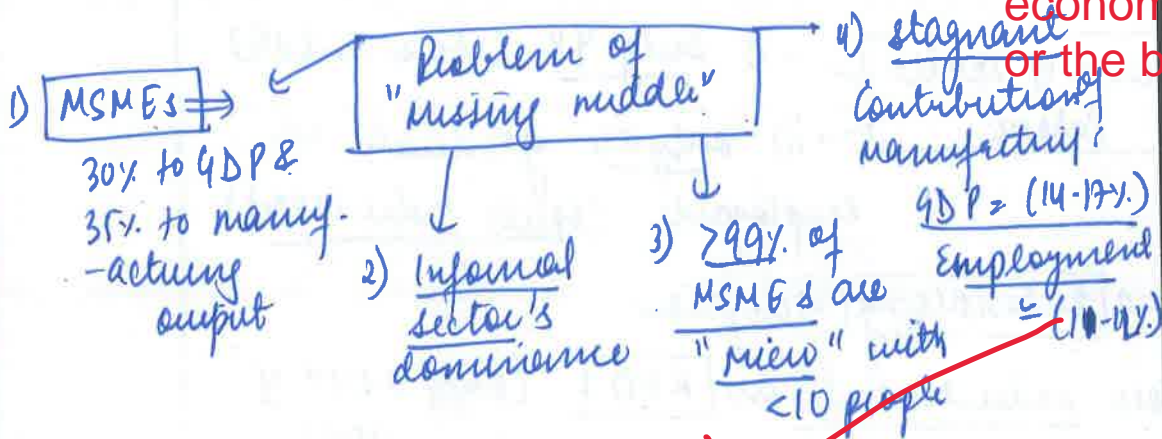 econom
or the b
Problem of
"missing middle"
1) MSMEs ⇒
30% to GDP &
35% to manuf-
-acturing
output
2) Informal
sector's
dominance
3) >99% of
MSMEs are
"micro" with
<10 people
4) stagnant
Contribution of
manufacturing:
GDP = (14-17%)
Employment